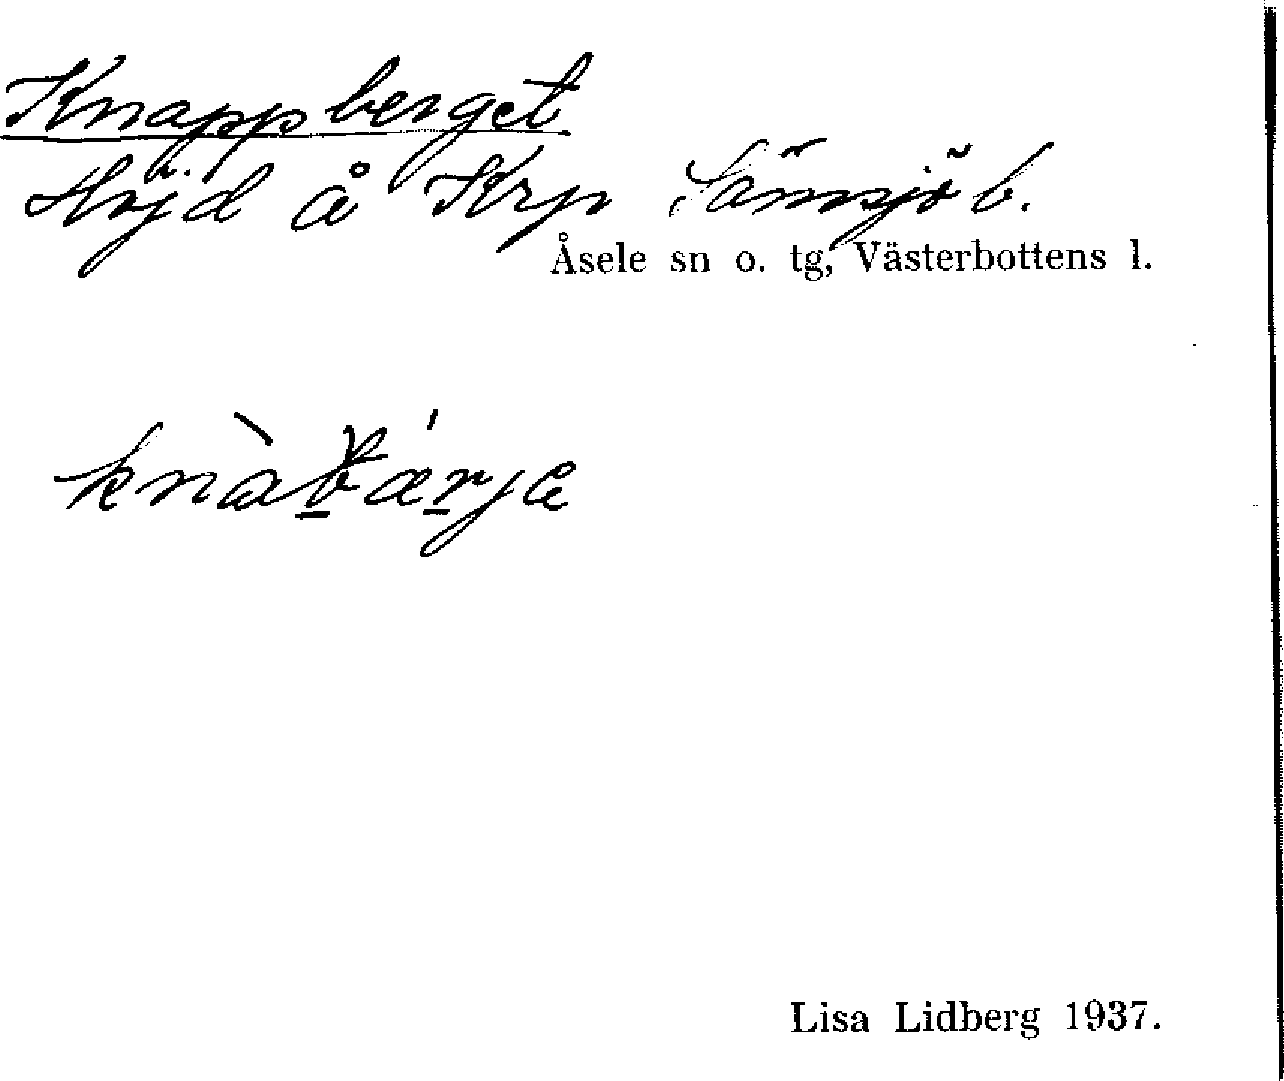 Knappberget
Höjd å Krp Sämsjö b.
Åsele sn o. tg, Västerbottens l.
Lisa Lidberg 1937.